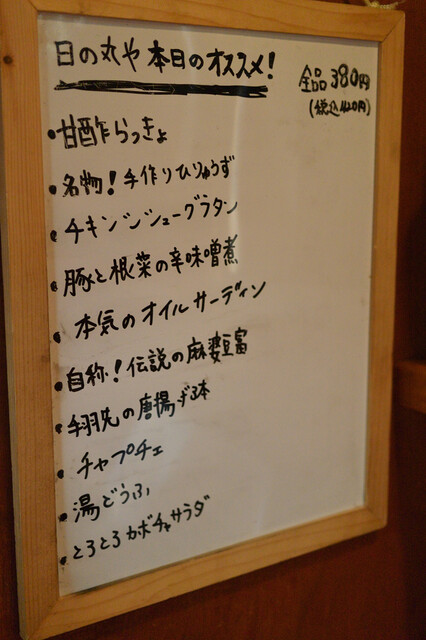 日の丸や本日のオススメ!
全品380円
(税込420円)
・甘酢らっきょ
・名物!手作りひりゅうず
・チキンシチューグラタン
・豚と根菜の辛味噌煮
・本気のオイルサーディン
・自称!伝説の麻婆豆富
・手羽先の唐揚げ3本
・チャプチェ
・湯どうふ
・とろとろカボチャサラダ